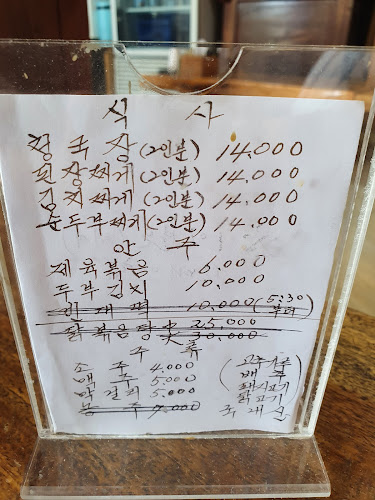 식 사
청국장 (2인분) 14,000
된장찌게 (2인분) 14,000
김치찌게 (2인분) 14,000
순두부찌게 (2인분) 14,000
안 주
제육볶음 6,000
두부김치 10,000
10,000 (5:30 부터
닭볶음탕 大 25,000
30,000
주 류
소 주 4,000
맥 주 5,000
막걸리 5,000
7,000
(고추가루
배추
돼지고기
닭고기
국내산)